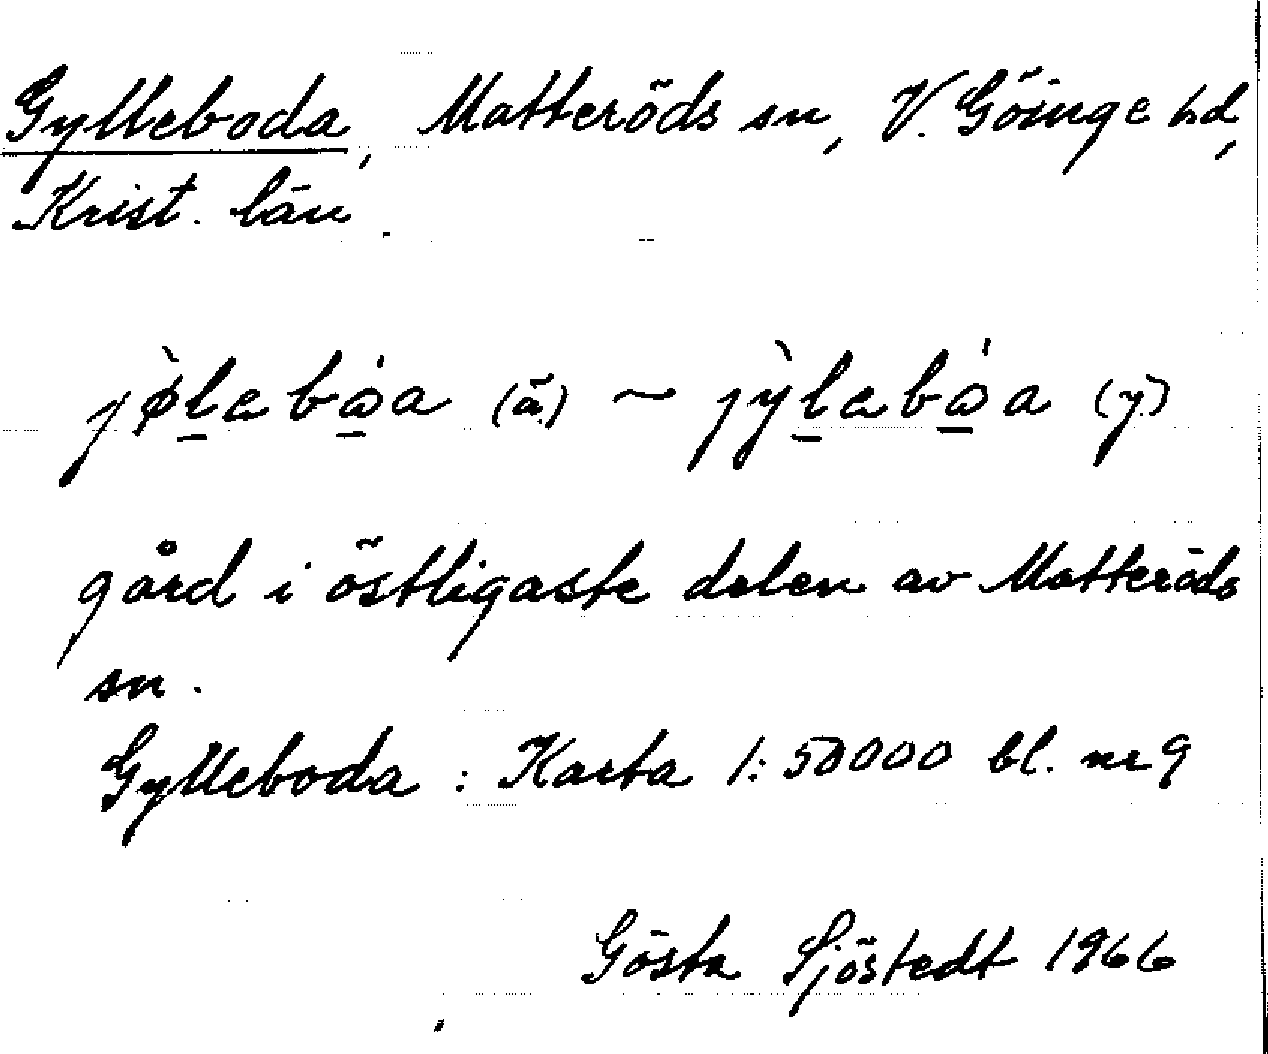 Gylleboda, Matteröds sn, V. Göinge hd,
Krist. län.
jø̀lebá̱a (ä) ~ jỳlebá̱a (y)
gård i östligaste delen av Matteröds
sn.
Gylleboda : Karta 1:50000 bl. nr 9
Gösta Sjöstedt 1966